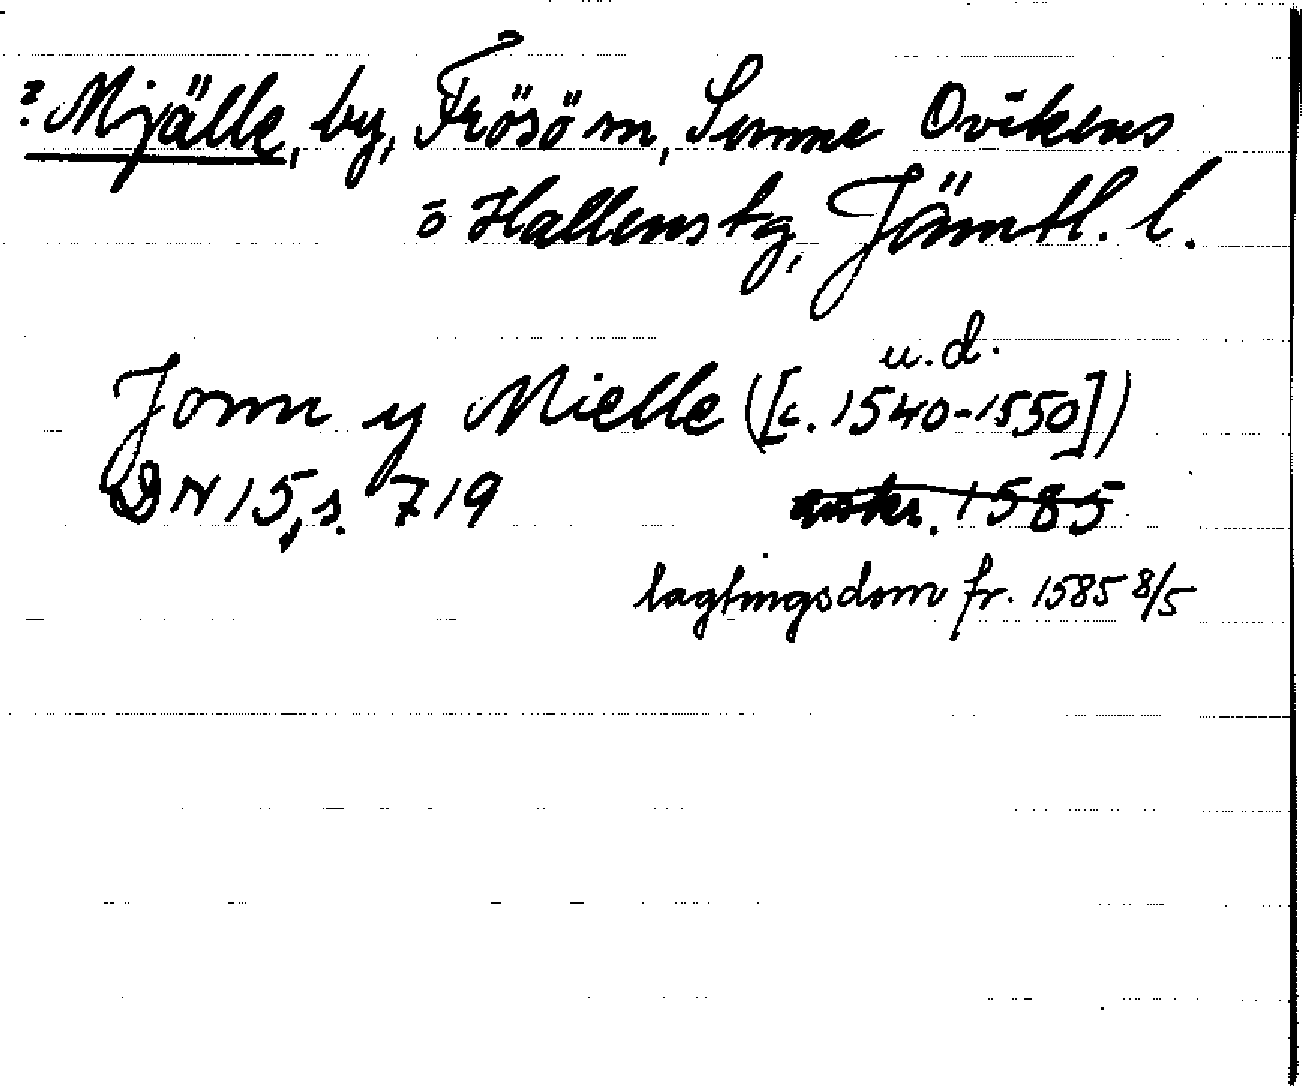 ? Mjälle, by, Frösö sn, Sunne Ovikens
o Hallens tg, Jämtl. l.
u.d.
Jonn y Mielle ([c. 1540-1550])
DN 15, s. 719 avskr. 1585
lagtingsdom fr. 1585 8/5